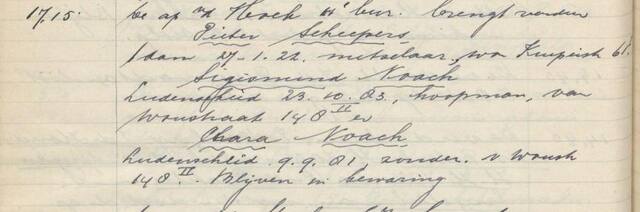 17.15. be ap v/d Hoek II bur. brengt verder
Pieter Scheepers
Adam 27-1.22. metselaar, wo Kuiperstr 61.
Sigismund Noach
Ludenscheid 23.10.83, koopman, van
Woustraat 148 II en
Clara Noach
Ludenscheid. 9.9.81, zonder. v Woustr
148. II. Blijven in bewaring